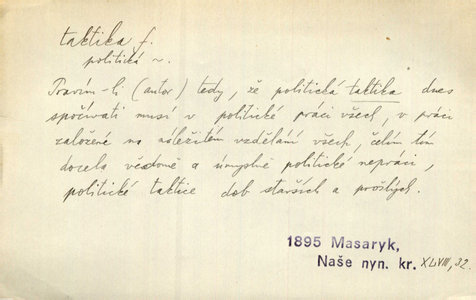 taktika f.
politická ~.
Pravím-li (autor) tedy, že politická taktika dnes
spočívati musí v politické práci všech, v práci
založené na náležitém vzdělání všech, čelím tím
docela vědomě a úmyslně politické nepráci,
politické taktice dob starších a prošlých.
1895 Masaryk,
Naše nyn. kr. XLVIII, 32.